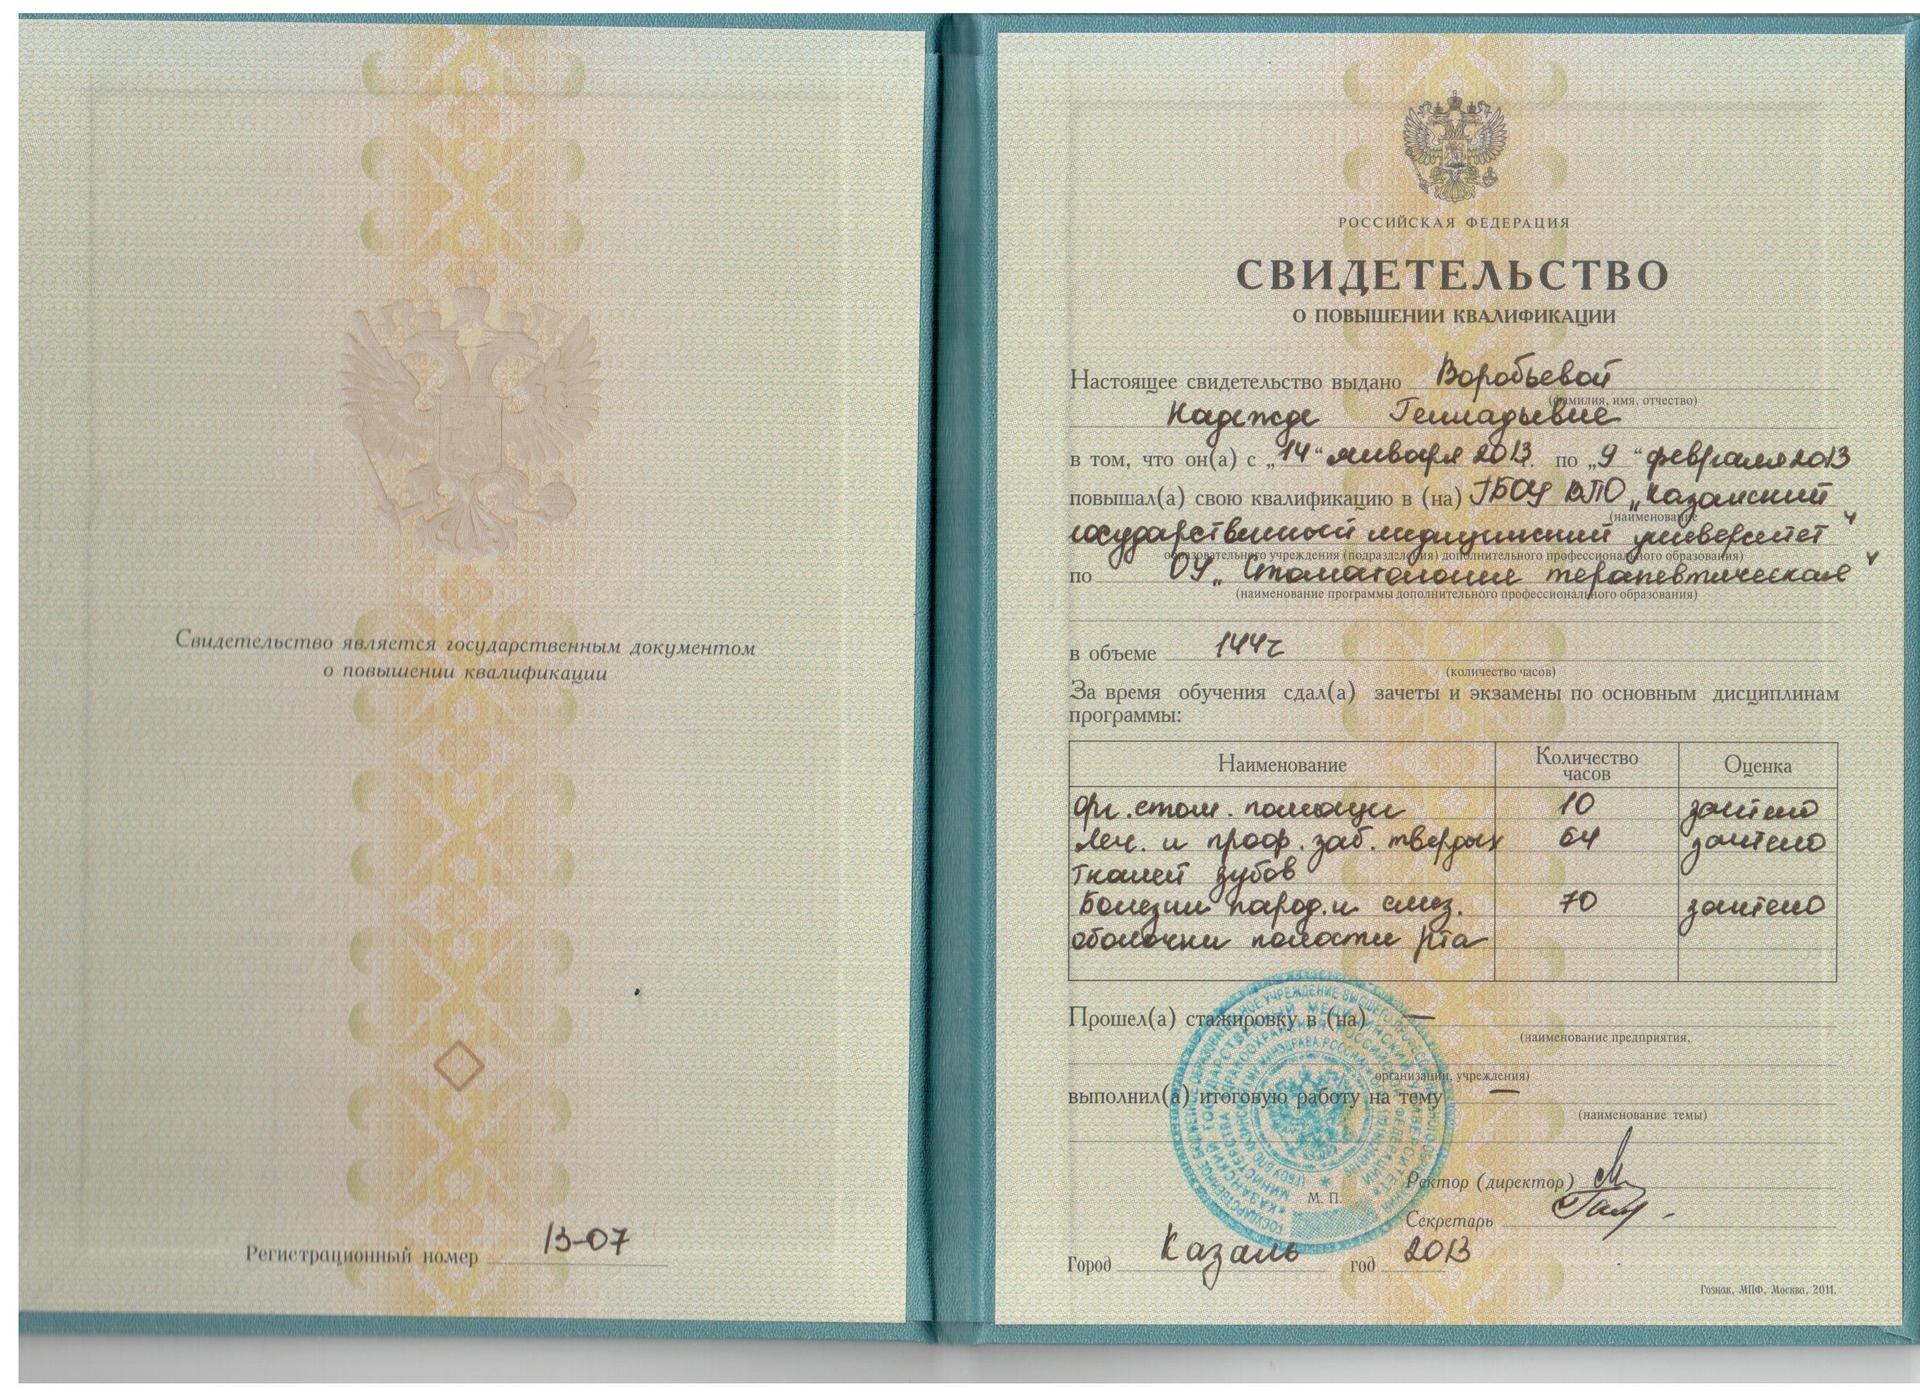 Свидетельство является государственным документом
о повышении квалификации
Регистрационный номер 13-07
РОССИЙСКАЯ ФЕДЕРАЦИЯ
СВИДЕТЕЛЬСТВО
О ПОВЫШЕНИИ КВАЛИФИКАЦИИ
Настоящее свидетельство выдано Воробьевой
(фамилия, имя, отчество)
Надежде Геннадьевне
в том, что он(а) с „14“ января 2013 г. по „9“ февраля 2013
повышал(а) свою квалификацию в (на) ГБОУ ВПО „Казанский
(наименование
государственный медицинский университет“
образовательного учреждения (подразделения) дополнительного профессионального образования)
по ОУ „Стоматология терапевтическая“
(наименование программы дополнительного профессионального образования)
в объеме 144ч
(количество часов)
За время обучения сдал(а) зачеты и экзамены по основным дисциплинам
программы:
Наименование Количество часов Оценка
Орг. стом. помощи 10 зачтено
Леч. и проф. заб. твердых 64 зачтено
тканей зубов
Болезни парод. и слиз. 70 зачтено
оболочки полости рта
Прошел(а) стажировку в (на) —
(наименование предприятия,
организации, учреждения)
выполнил(а) итоговую работу на тему —
(наименование темы)
М. П.
Ректор (директор)
Секретарь
Город Казань год 2013
Гознак, МПФ, Москва, 2011.